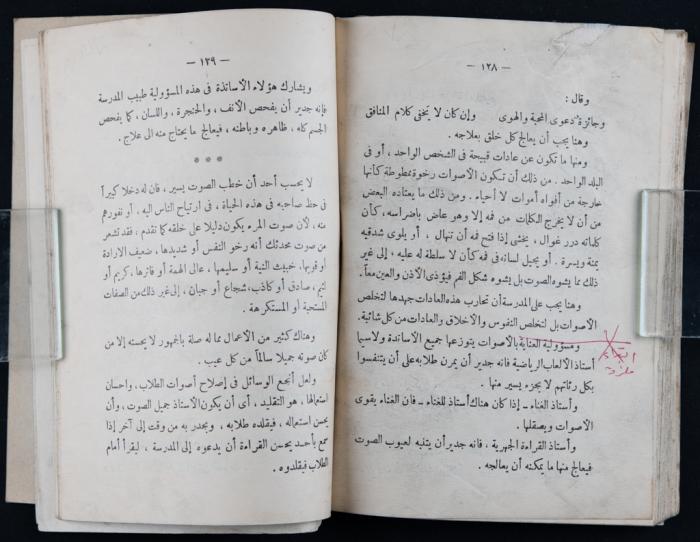 — ١٢٨ —
وقال :
وجائزة دعوى المحبة والهوى وإن كان لا يخفى كلام المنافق
وهنا يجب أن يعالج كل خلق بعلاجه .
ومنها ما تكون عن عادات قبيحة فى الشخص الواحد ، أو فى
البلد الواحد . من ذلك أن تكون الأصوات رخوة ممطوطة كأنها
خارجة من أفواه أموات لا أحياء . ومن ذلك ما يعتاده البعض
من أن لا يخرج الكلمات من فمه إلا وهو عاض بأضراسه ، كأن
كلماته درر غوال ، يخشى إذا فتح فمه أن تنهال ، أو يلوى شدقيه
يمنة ويسرة . أو يحيل لسانه فى فمه كأن لا سلطة له عليه ، إلى غير
ذلك مما يشوه الصوت بل يشوه شكل الفم فيؤذى الأذن والعين معاً .
وهنا يجب على المدرسة أن تحارب هذه العادات جهدها لتخلص
الأصوات بل لتخلص النفوس والأخلاق والعادات من كل شائبة .
ومسؤولية العناية بالأصوات يتوزعها جميع الأساتذة ولاسيما
أستاذ الألعاب الرياضية فانه جدير أن يمرن طلابه على أن يتنفسوا
بكل رئاتهم لا بجزء يسير منها .
وأستاذ الغناء ـ إذا كان هناك أستاذ للغناء ـ فان الغناء يقوى
الأصوات ويصقلها .
وأستاذ القراءة الجهرية ، فانه جدير أن يتنبه لعيوب الصوت
فيعالج منها ما يمكنه أن يعالجه .
— ١٢٩ —
ويشارك هؤلاء الأساتذة فى هذه المسؤولية طبيب المدرسة
فإنه جدير أن يفحص الأنف ، والحنجرة ، واللسان ، كما يفحص
الجسم كله ، ظاهره وباطنه ، فيعالج ما يحتاج منه الى علاج .
* * *
لا يحسب أحد أن خطب الصوت يسير ، فان له دخلا كبيراً
فى حظ صاحبه فى هذه الحياة ، فى ارتياح الناس اليه ، أو نفورهم
منه ، لأن صوت المرء يكون دليلا على خلقه كما تقدم : فقد تشعر
من صوت محدثك أنه رخو النفس أو شديدها ، ضعيف الارادة
أو قويها ، خبيث النية أو سليمها ، عالى الهمة أو فاترها ، كريم أو
لئيم ، صادق أو كاذب ، شجاع أو جبان ، إلى غير ذلك من الصفات
المستحبة أو المستكرهة .
وهناك كثير من الأعمال مما له صلة بالجمهور لا يحسنه إلا من
كان صوته جميلا سالماً من كل عيب .
ولعل أنجع الوسائل فى إصلاح أصوات الطلاب ، وإحسان
استعمالها ، هو التقليد ، أى أن يكون الأستاذ جميل الصوت ، وأن
يحسن استعماله ، فيقلده طلابه ، ويجدر به من وقت إلى آخر إذا
سمع بأحد يحسن القراءة أن يدعوه إلى المدرسة ، ليقرأ أمام
الطلاب فيقلدوه .